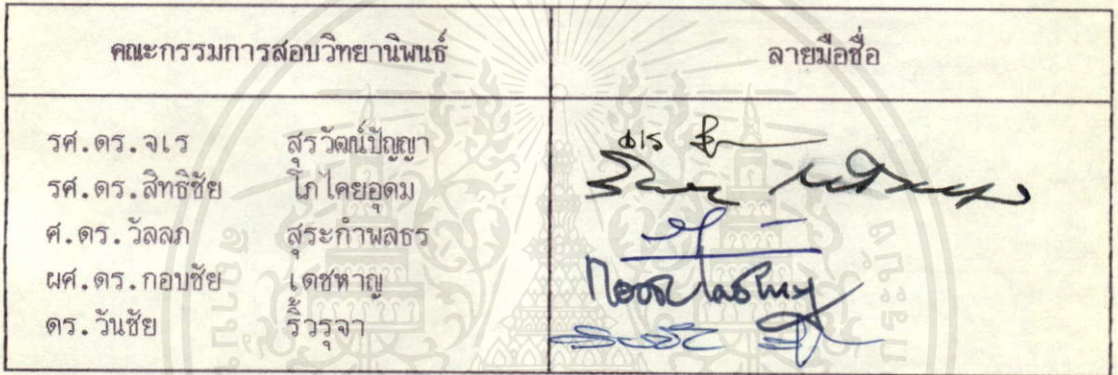 คณะกรรมการสอบวิทยานิพนธ์ ลายมือชื่อ
รศ.ดร.จเร สุรวัฒน์ปัญญา
รศ.ดร.สิทธิชัย โภไคยอุดม
ศ.ดร.วัลลภ สุระกำพลธร
ผศ.ดร.กอบชัย เดชหาญ
ดร.วันชัย ริ้วรุจา